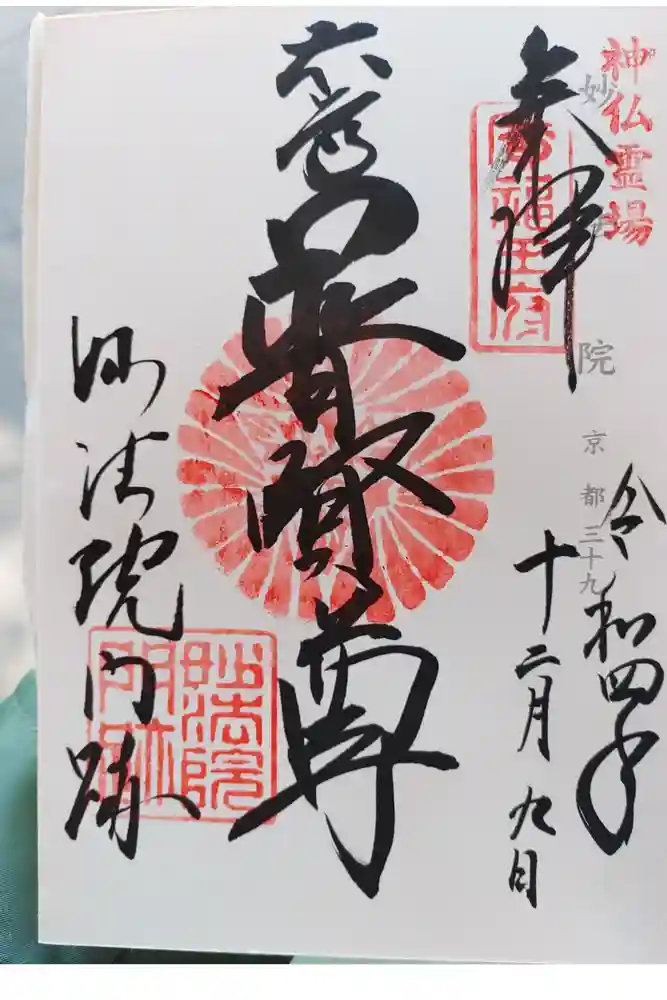 神仏霊場
妙法院 京都三十九
奉拝
令和四年
十二月九日
普賢尊
妙法院門跡
妙法院
門跡